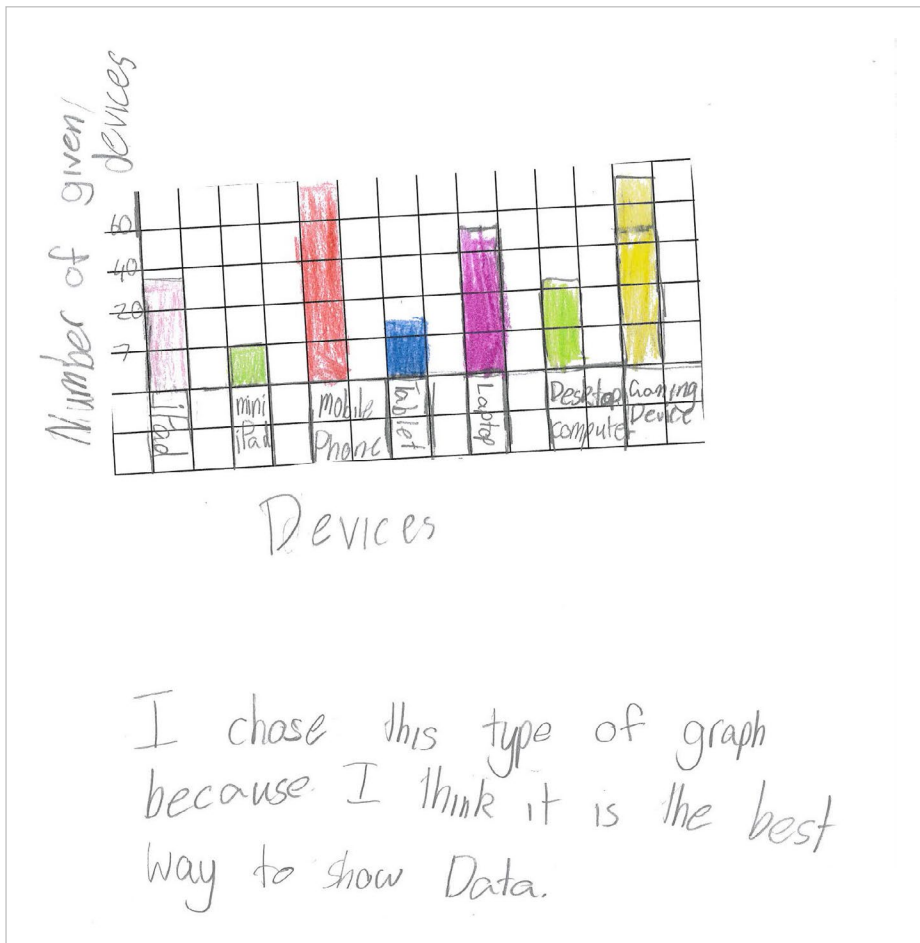 Number of given/
devices
60
40
20
7
iPad
mini
iPad
Mobile
Phone
Tablet
Laptop
Desktop
computer
Gaming
Device
Devices
I chose this type of graph
because I think it is the best
way to show Data.